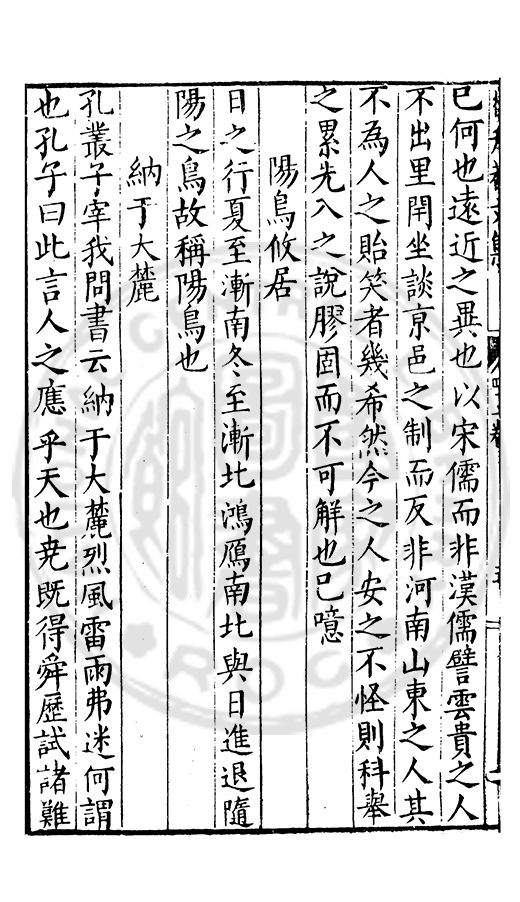 已何也遠近之異也以宋儒而非漢儒譬雲貴之人
不出里閈坐談京邑之制而反非河南山東之人其
不為人之貽笑者幾希然今之人安之不怪則科舉
之累先入之說膠固而不可解也已噫
陽鳥攸居
日之行夏至漸南冬至漸北鴻鴈南北與日進退隨
陽之鳥故稱陽鳥也
納于大麓
孔叢子宰我問書云納于大麓烈風雷雨弗迷何謂
也孔子曰此言人之應乎天也堯既得舜歷試諸難